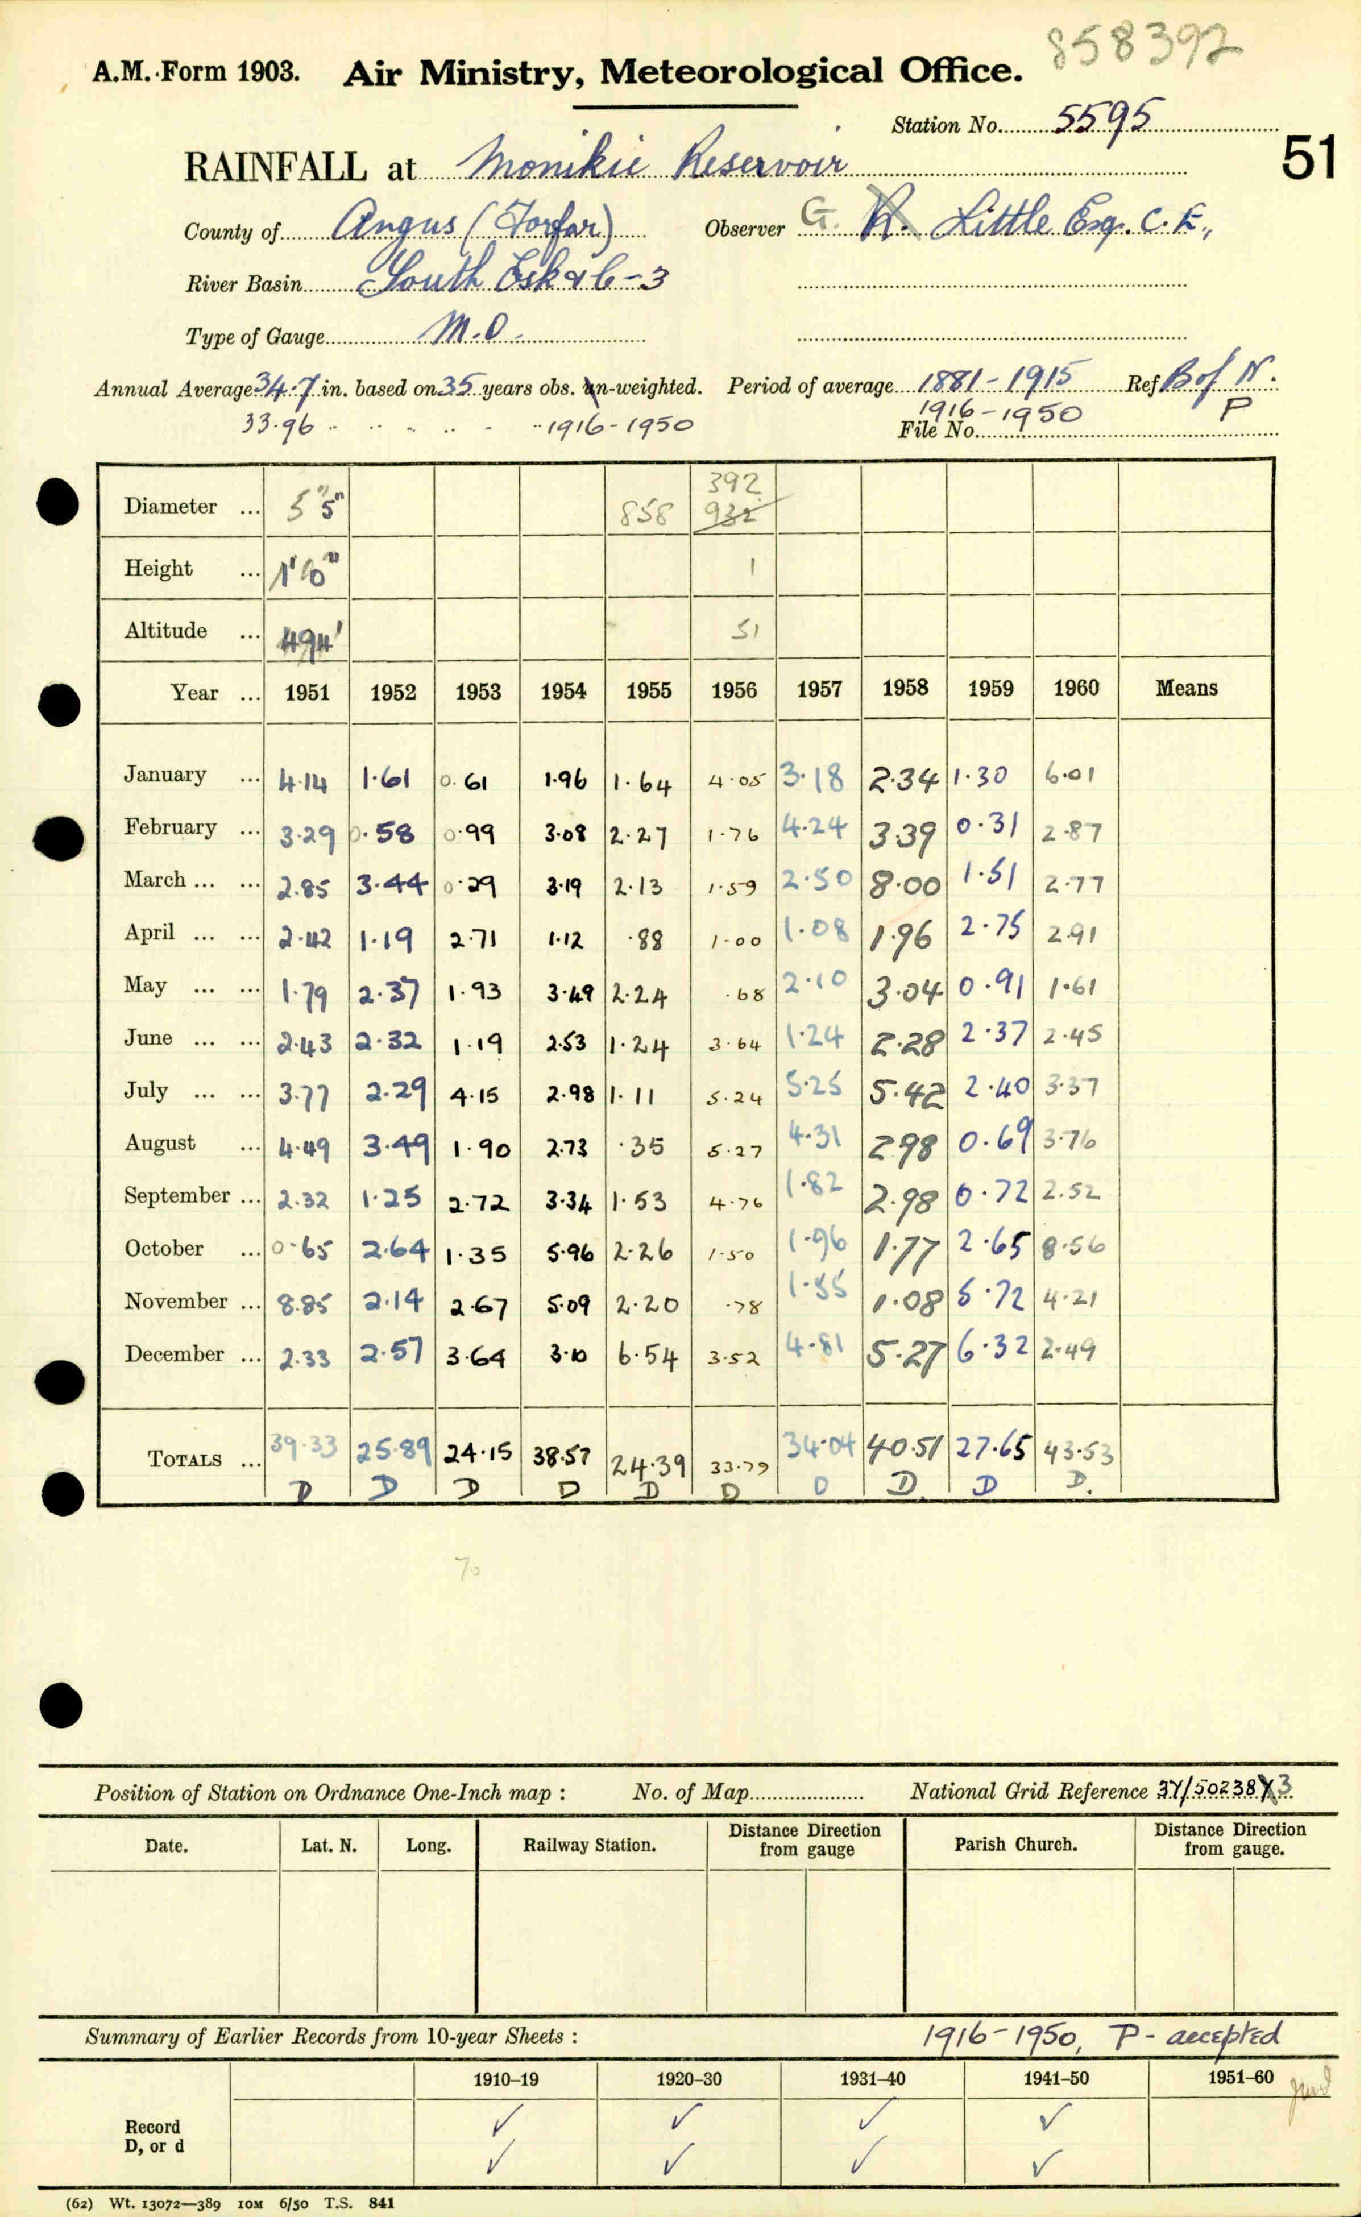 858392
A.M. Form 1903. Air Ministry, Meteorological Office.
Station No. 5595
51
RAINFALL at Monikie Reservoir
County of Angus (Forfar) Observer G. R. Little Esq. C.E.,
River Basin South Esk & C-3
Type of Gauge M.O.
Annual Average 34.7 in. based on 35 years obs. un-weighted. Period of average 1881-1915 Ref. B of N.
33.96 " " " " " " 1916-1950 1916-1950 P
File No.
Diameter ... 5" 5" 858 392 932
Height ... 1'0" 1
Altitude ... 494' 51
Year ... 1951 1952 1953 1954 1955 1956 1957 1958 1959 1960 Means
January ... 4.14 1.61 0.61 1.96 1.64 4.05 3.18 2.34 1.30 6.01
February ... 3.29 0.58 0.99 3.08 2.27 1.76 4.24 3.39 0.31 2.87
March ... ... 2.85 3.44 0.29 3.19 2.13 1.59 2.50 8.00 1.51 2.77
April ... ... 2.42 1.19 2.71 1.12 .88 1.00 1.08 1.96 2.75 2.91
May ... ... 1.79 2.37 1.93 3.49 2.24 .68 2.10 3.04 0.91 1.61
June ... ... 2.43 2.32 1.19 2.53 1.24 3.64 1.24 2.28 2.37 2.45
July ... ... 3.77 2.29 4.15 2.98 1.11 5.24 5.25 5.42 2.40 3.37
August ... 4.49 3.49 1.90 2.73 .35 5.27 4.31 2.98 0.69 3.76
September ... 2.32 1.25 2.72 3.34 1.53 4.76 1.82 2.98 0.72 2.52
October ... 0.65 2.64 1.35 5.96 2.26 1.50 1.96 1.77 2.65 8.56
November ... 8.85 2.14 2.67 5.09 2.20 .78 1.55 1.08 5.72 4.21
December ... 2.33 2.57 3.64 3.10 6.54 3.52 4.81 5.27 6.32 2.49
TOTALS ... 39.33 25.89 24.15 38.57 24.39 33.79 34.04 40.51 27.65 43.53
D D D D D D D D. D D.
70
Position of Station on Ordnance One-Inch map : No. of Map National Grid Reference 37/502383
Date. Lat. N. Long. Railway Station. Distance from Direction gauge Parish Church. Distance from Direction gauge.
Summary of Earlier Records from 10-year Sheets : 1916-1950, P - accepted
1910–19 1920–30 1931–40 1941–50 1951–60
Record ✓ ✓ ✓ ✓
D, or d ✓ ✓ ✓ ✓
(62) Wt. 13072—389 10M 6/50 T.S. 841